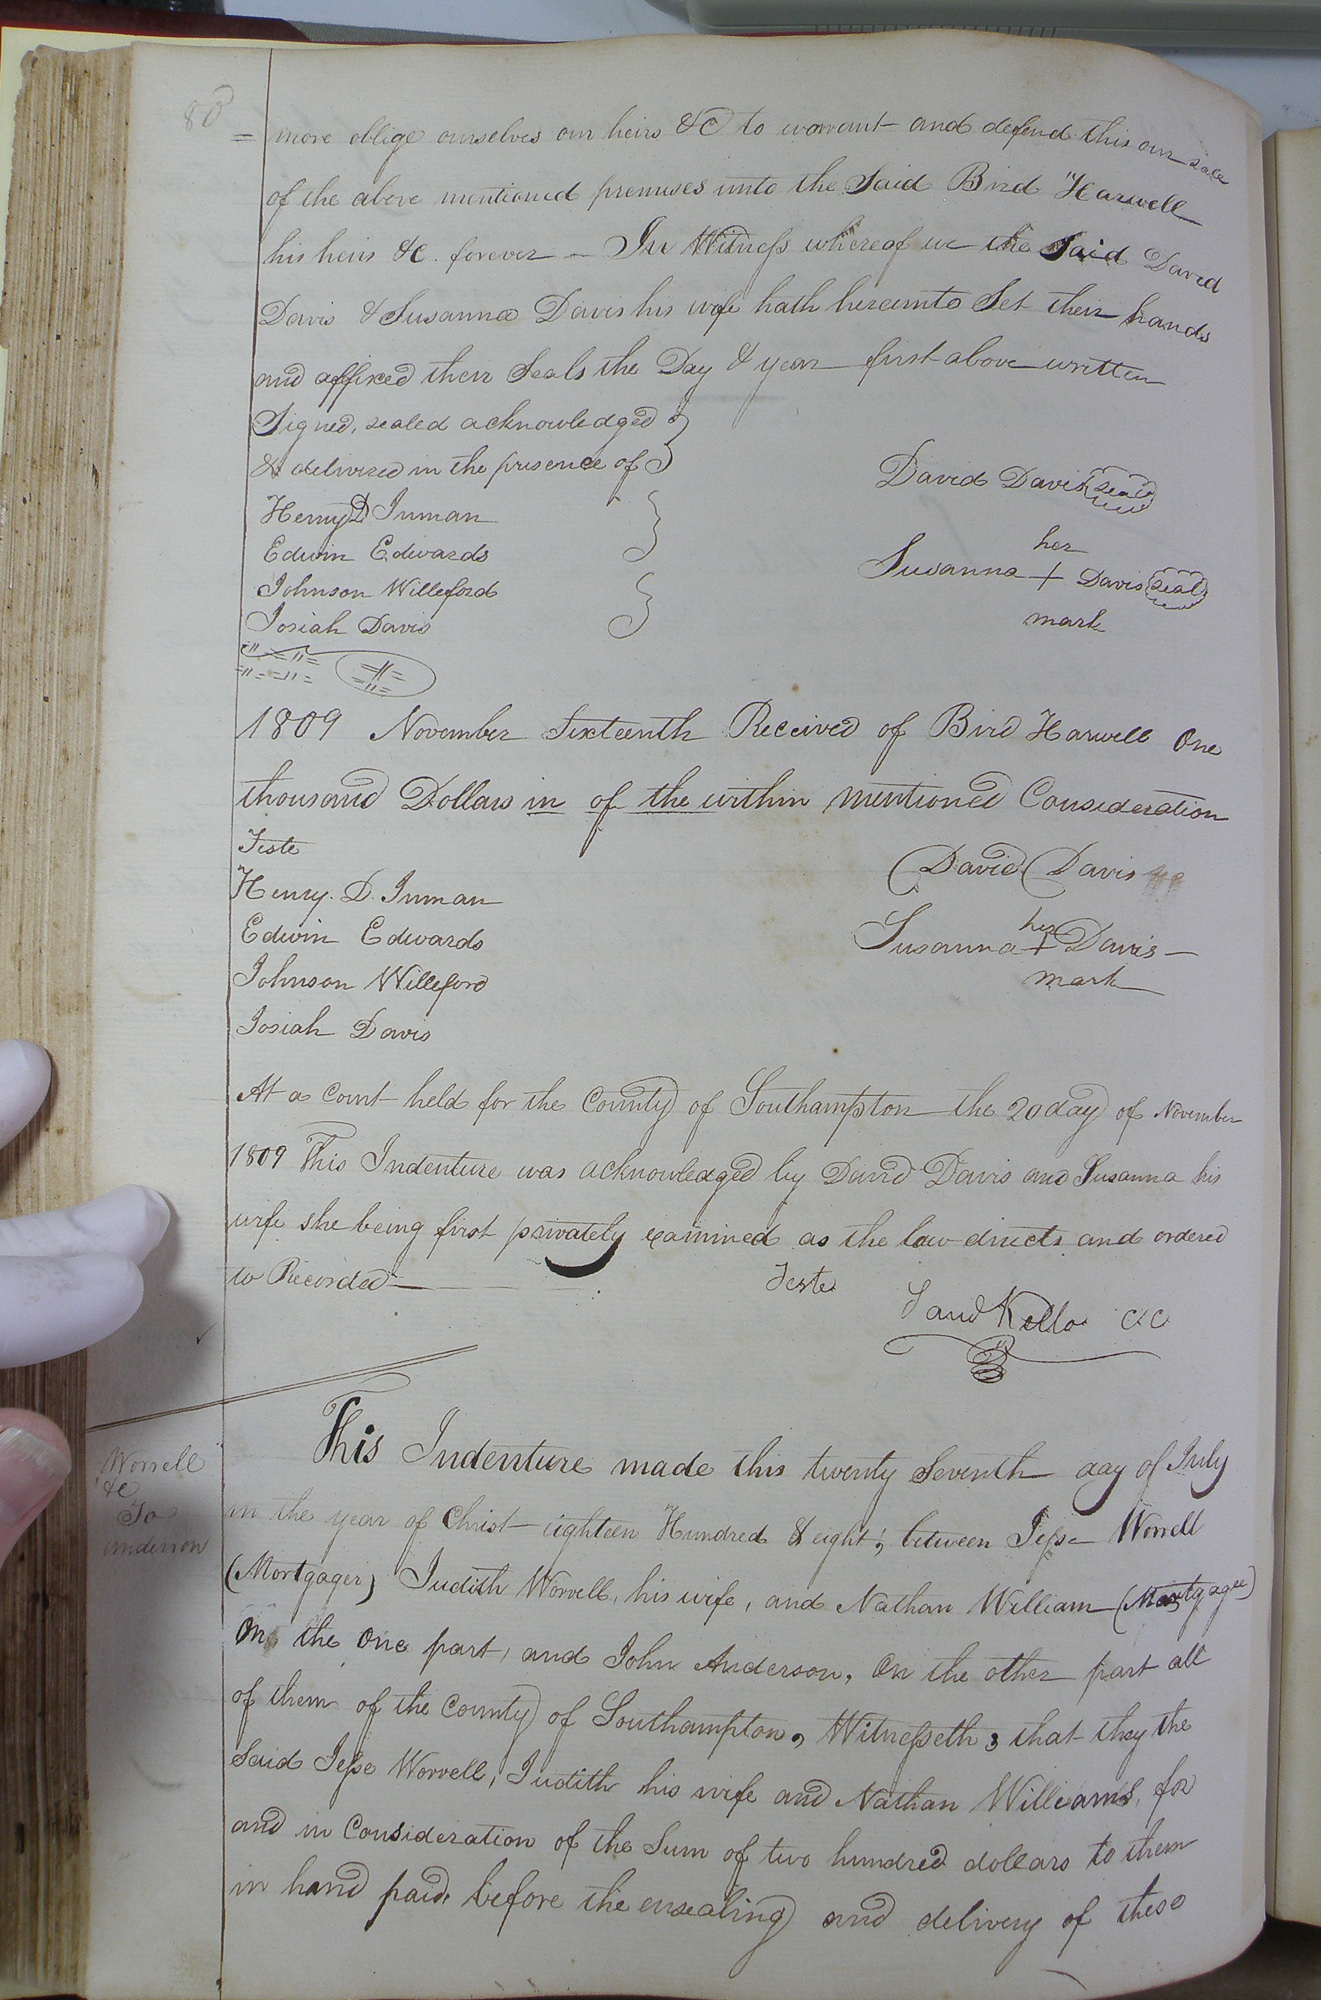 80
= more oblige ourselves our heirs &C to warrant and defend this our sale
of the above mentioned premises unto the Said Bird Harwell
his heirs &c. forever - In Witness whereof we the Said David
Davis & Susanna Davis his wife hath hereunto Set their hands
and affixed their Seals the Day & year first above written
Signed, sealed acknowledged
& delivered in the presence of
David Davis seal
Henry D Inman
Edwin Edwards
her
Susanna + Davis seal
Johnson Willeford
Josiah Davis
mark
1809 November Sixteenth Received of Bird Harwell One
thousand Dollars in of the within mentioned Consideration
Teste
David Davis
Henry. D. Inman
Edwin Edwards
her
Susanna + Davis
Johnson Willeford
mark
Josiah Davis
At a Court held for the County of Southampton the 20 day of November
1809 This Indenture was acknowledged by David Davis and Susanna his
wife she being first privately examined as the law directs and ordered
to Recorded
Teste
Saml Kello CC
Worrell
&C
To
Anderson
This Indenture made this twenty Seventh day of July
in the year of Christ eighteen Hundred & eight; between Jesse Worrell
(Mortgager) Judith Worrell, his wife, and Nathan William (Mortgagee)
On the One part, and John Anderson, On the other part all
of them of the County of Southampton, Witnesseth; that they the
Said Jesse Worrell, Judith his wife and Nathan Williams, for
and in Consideration of the Sum of two hundred dollars to them
in hand paid, before the ensealing and delivery of these